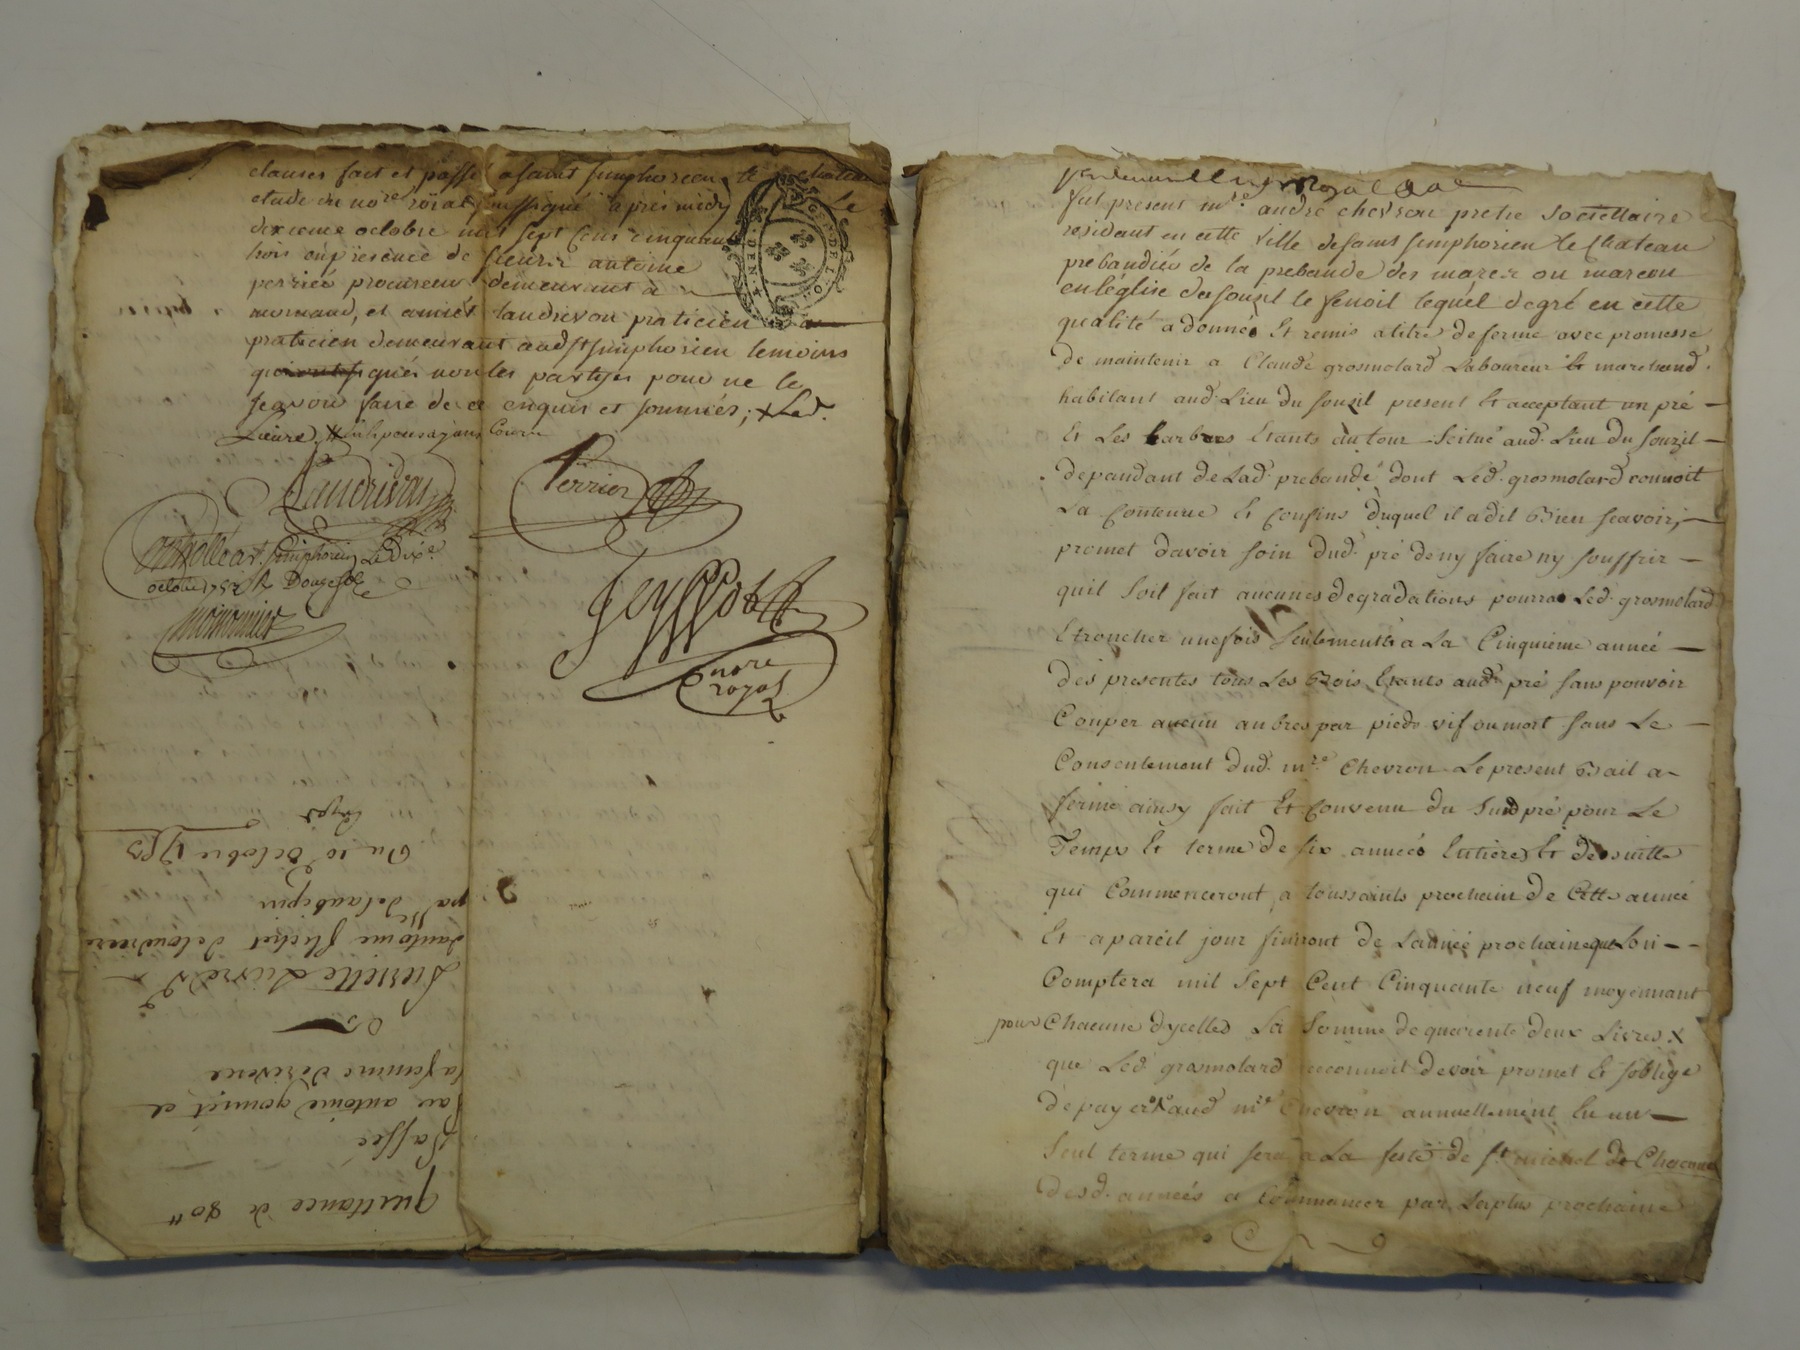 clauses fait et passé a saint simphorien le chateau
etude du no.re roïal soussigné après midy le
dixieme octobre mil sept cens cinquante
trois en présence de sieur antoine
perriér procureur demeurant à
et landrivon praticien
praticien demeurant aud st simphorien temoins
qui ont signés non les partyes pour ne le
scavoir faire de ce enquis et sommés; x Led.
Lieure x
Landrivon
Perrier
Controllé a st. simphorien Le dix.e
octobre 1753 R Douze sols
Teyssot
nore
royal
quittance de 80 tt
passée
par antoine gonnet et
sa femme
a
Pierrette
d'antoine
pa.sse de laubépin
Du 10 octobre 1753
royal
fut présent m.re andré chevron pretre societtaire
residant en cette ville de saint simphorien le Chateau
prebandiér de la prebande des mazes ou marcou
en l'église du souzil le lequél de gré en cette
qualité a donnés Et remis a titre de ferme avec promesse
de maintenir a Claude grosmolard Laboureur Et marchand
habitant aud. Lieu du souzil present Et acceptant un pré –
Et Les harbres Etants autour scitué aud. Lieu du souzil –
dépandant de Lad. prebande dont Led. grosmolard connoit
La Contenue Et Confins duquel il a dit Bien scavoir, –
promet d'avoir soin dud. pré de ny faire ny souffrir –
quil soit fait aucunes degradations pourra Led. grosmolard
Etroncher une fois seulement à La Cinquieme année –
dés presentes tous Les Bois Etants aud. pré sans pouvoir
Couper aucun aubres par pieds vif ou mort sans Le –
Consentement dud. m.re Chevron Le present Bail a
ferme ainsy fait Et Convenu du Sud pré pour Le
Temps Et terme de six années Entières Et de suitte
qui Commenceront a toussaints prochain de Cette année
Et a pareil jour finiront de L'année prochaine que Lon –
Comptera mil Sept Cent Cinquante neuf moyennant
pour Chacune dycelles La Somme de quarente deux Livres x
que Led. grosmolard reconnoit devoir promet Et soblige
de payer aud m.re Chevron annuellement En un –
Seul terme qui sera a La feste de st. michel de Chacune
desd. années a Commancer par La plus prochaine